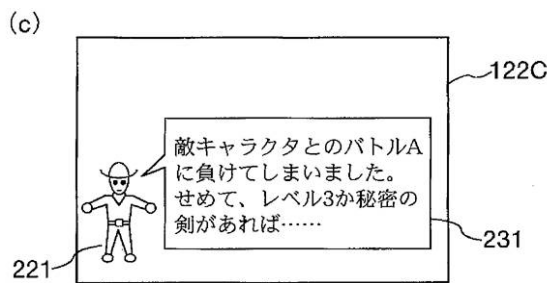 (c)
122C
敵キャラクタとのバトルA
に負けてしまいました。
せめて、レベル3か秘密の
剣があれば……
231
221